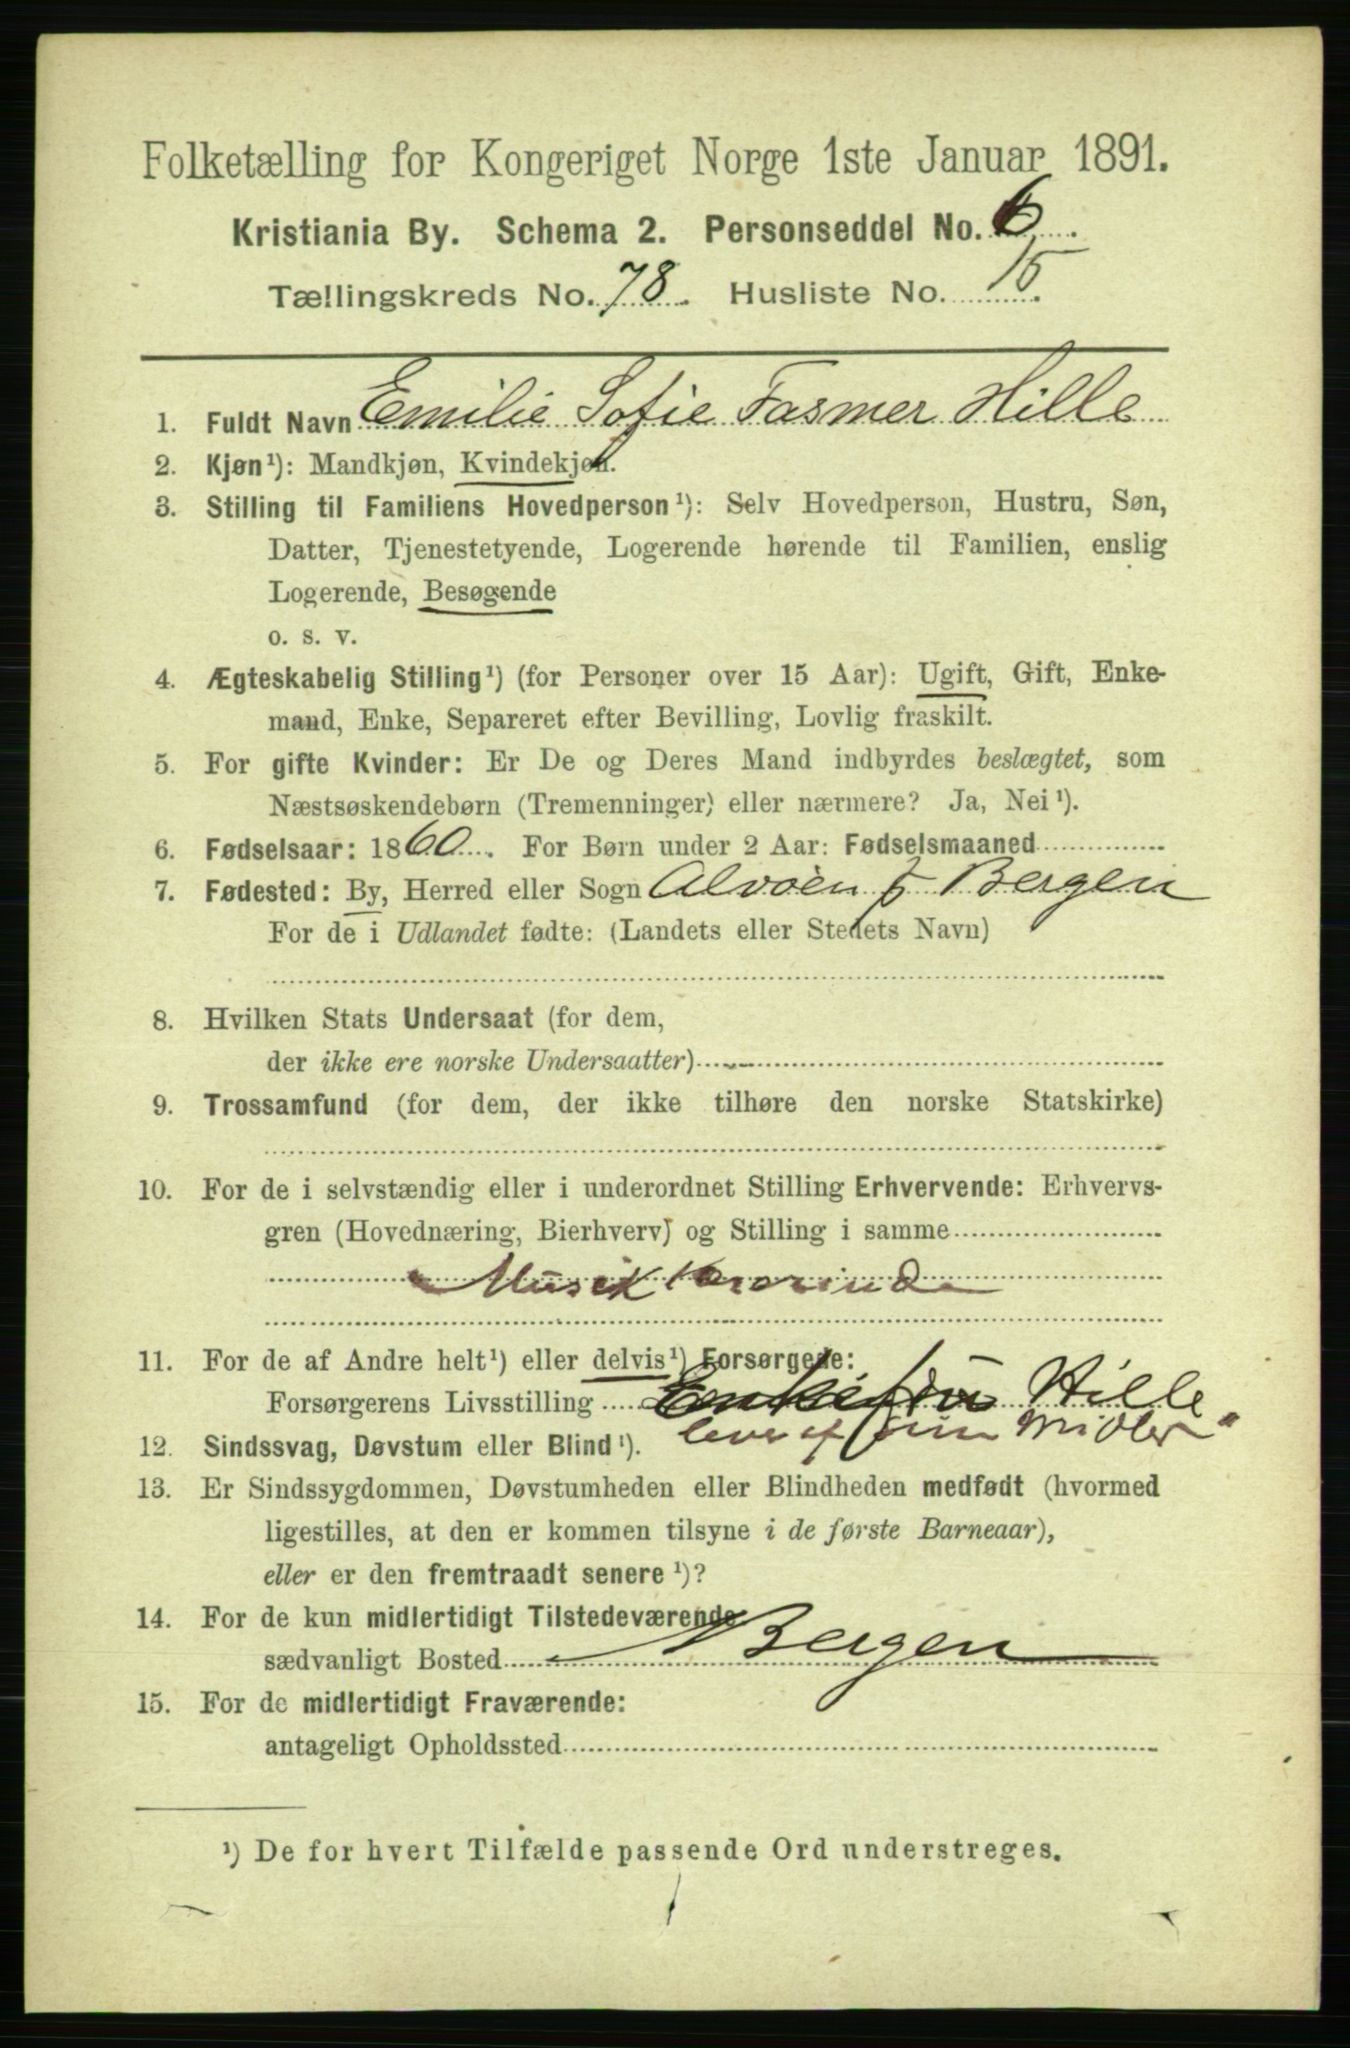 Folketælling for Kongeriget Norge 1ste Januar 1891.
Kristiania By. Schema 2. Personseddel No. 6.
Tællingskreds No. 78. Husliste No. 15.
1. Fuldt Navn Emilie Sofie Fasmer Hille
2. Kjøn¹): Mandkjøn, Kvindekjøn.
3. Stilling til Familiens Hovedperson¹): Selv Hovedperson, Hustru, Søn,
Datter, Tjenestetyende, Logerende hørende til Familien, enslig
Logerende, Besøgende
o. s. v.
4. Ægteskabelig Stilling¹) (for Personer over 15 Aar): Ugift, Gift, Enke-
mand, Enke, Separeret efter Bevilling, Lovlig fraskilt.
5. For gifte Kvinder: Er De og Deres Mand indbyrdes beslægtet, som
Næstsøskendebørn (Tremenninger) eller nærmere? Ja, Nei¹).
6. Fødselsaar: 1860. For Børn under 2 Aar: Fødselsmaaned
7. Fødested: By, Herred eller Sogn Alvøen Bergen
For de i Udlandet fødte: (Landets eller Stedets Navn)
8. Hvilken Stats Undersaat (for dem,
der ikke ere norske Undersaatter)
9. Trossamfund (for dem, der ikke tilhøre den norske Statskirke)
10. For de i selvstændig eller i underordnet Stilling Erhvervende: Erhvervs-
gren (Hovednæring, Bierhverv) og Stilling i samme
Musiklærerinde
11. For de af Andre helt¹) eller delvis¹) Forsørgede:
Forsørgerens Livsstilling Enkefru Hille
lever af sine Midler"
12. Sindssvag, Døvstum eller Blind¹).
13. Er Sindssygdommen, Døvstumheden eller Blindheden medfødt (hvormed
ligestilles, at den er kommen tilsyne i de første Barneaar),
eller er den fremtraadt senere¹)?
14. For de kun midlertidigt Tilstedeværende:
sædvanligt Bosted Bergen
15. For de midlertidigt Fraværende:
antageligt Opholdssted
¹) De for hvert Tilfælde passende Ord understreges.